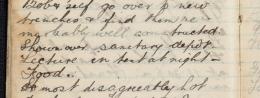 Bob & self go over p new
trenches & find them re-
markably well constructed.
Shown over sanitary depôt.
Lecture in tent at night –
Food.
A most disagreeably hot